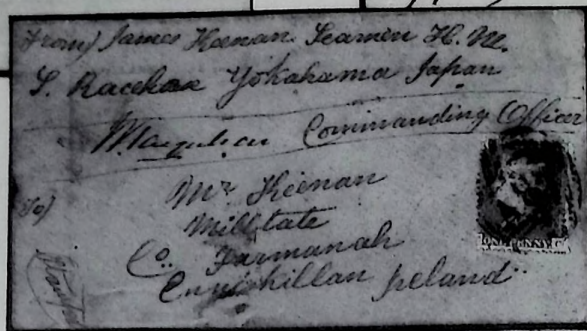 From) James Keenan Seamen H. M.
S. Racehas Yokahama Japan
Commanding Officer
To)
Mr Keenan
Milltate
Co. Farmanah
Enniskillan Ireland
ONE PENNY